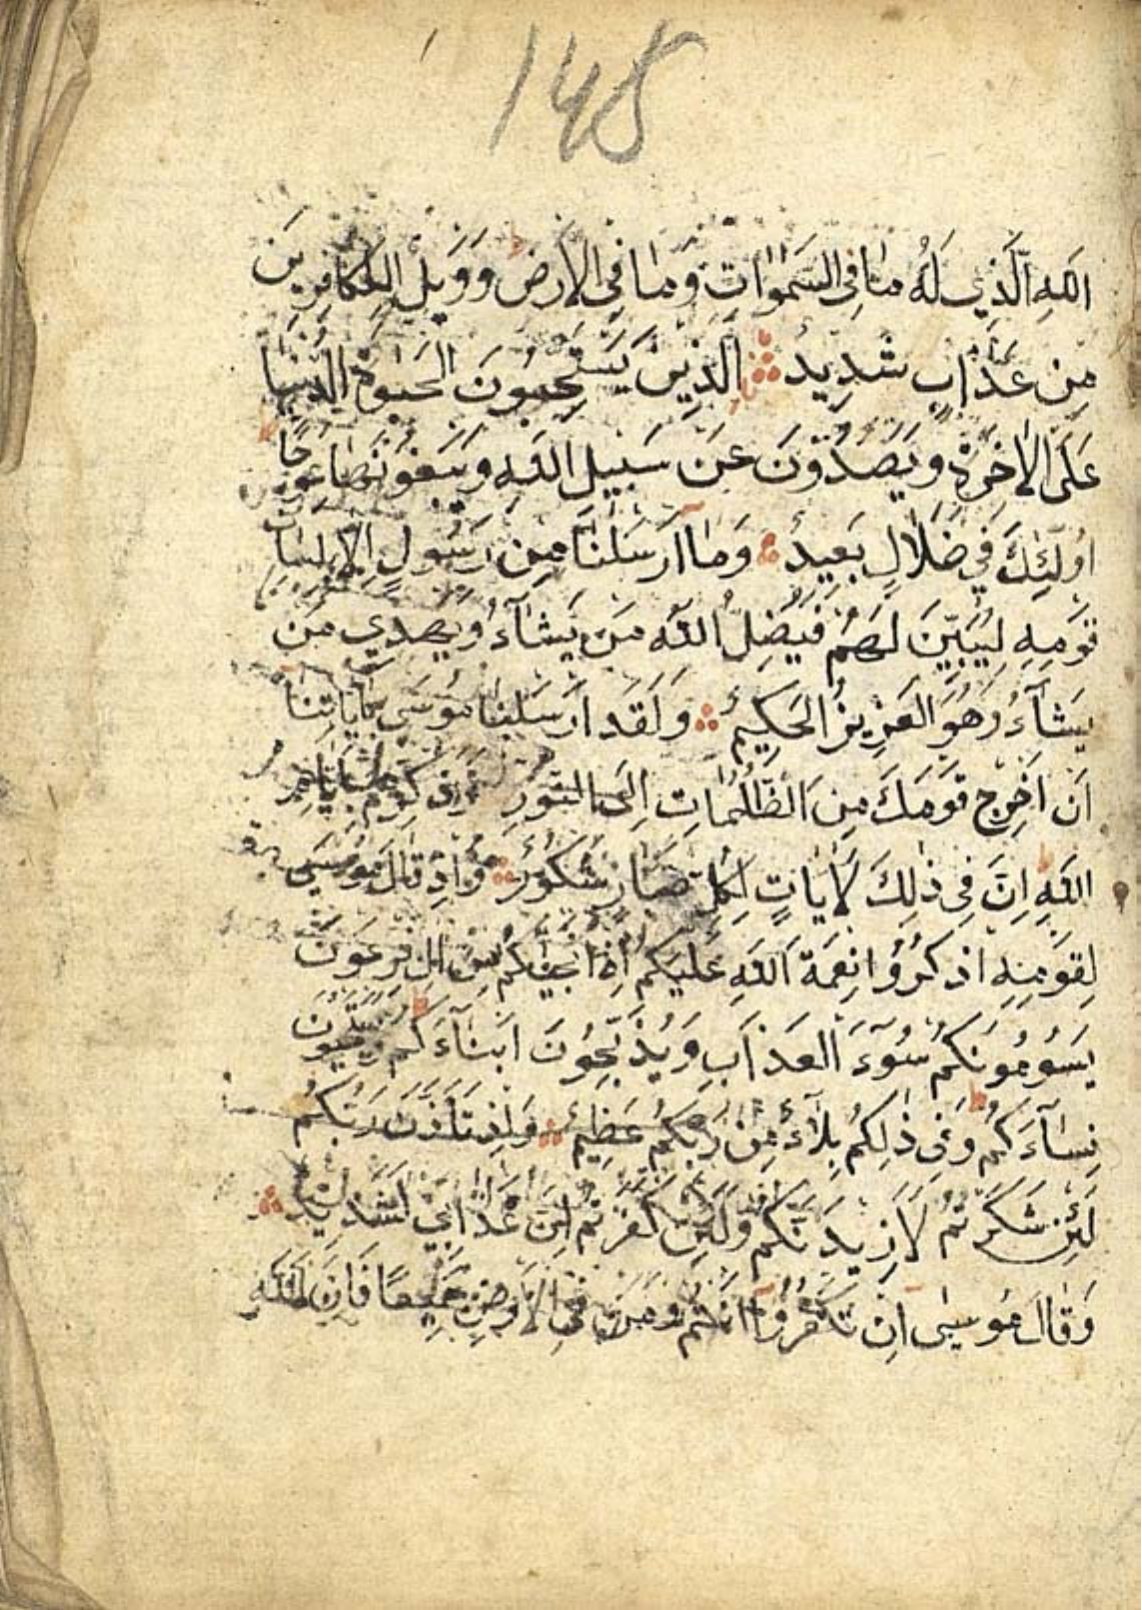 148
اللهِ الَّذِي لَهُ مَا فِي السَّمٰوَاتِ وَمَا فِي الْاَرْضِ وَوَيْلٌ لِلْكَافِرِينَ
مِنْ عَذَابٍ شَدِيدٍ الَّذِينَ يَسْتَحِبُّونَ الْحَيٰوةَ الدُّنْيَا
عَلَى الْاٰخِرَةِ وَيَصُدُّونَ عَنْ سَبِيلِ اللهِ وَيَبْغُونَهَا عِوَجًا
اُولٰئِكَ فِي ضَلَالٍ بَعِيدٍ وَمَا اَرْسَلْنَا مِنْ رَسُولٍ اِلَّا بِلِسَانِ
قَوْمِهِ لِيُبَيِّنَ لَهُمْ فَيُضِلُّ اللهُ مَنْ يَشَآءُ وَيَهْدِي مَنْ
يَشَآءُ وَهُوَ الْعَزِيزُ الْحَكِيمُ وَلَقَدْ اَرْسَلْنَا مُوسَى بِاٰيَاتِنَا
اَنْ اَخْرِجْ قَوْمَكَ مِنَ الظُّلُمَاتِ اِلَى النُّورِ وَذَكِّرْهُمْ بِاَيَّامِ
اللهِ اِنَّ فِي ذٰلِكَ لَاٰيَاتٍ لِكُلِّ صَبَّارٍ شَكُورٍ وَاِذْ قَالَ مُوسَى
لِقَوْمِهِ اذْكُرُوا نِعْمَةَ اللهِ عَلَيْكُمْ اِذْ اَنْجٰيكُمْ مِنْ اٰلِ فِرْعَوْنَ
يَسُومُونَكُمْ سُوٓءَ الْعَذَابِ وَيُذَبِّحُونَ اَبْنَآءَكُمْ وَيَسْتَحْيُونَ
نِسَآءَكُمْ وَفِي ذٰلِكُمْ بَلَآءٌ مِنْ رَبِّكُمْ عَظِيمٌ وَاِذْ تَاَذَّنَ رَبُّكُمْ
لَئِنْ شَكَرْتُمْ لَاَزِيدَنَّكُمْ وَلَئِنْ كَفَرْتُمْ اِنَّ عَذَابِي لَشَدِيدٌ
وَقَالَ مُوسٰى اِنْ تَكْفُرُوا اَنْتُمْ وَمَنْ فِي الْاَرْضِ جَمِيعًا فَاِنَّ اللهَ